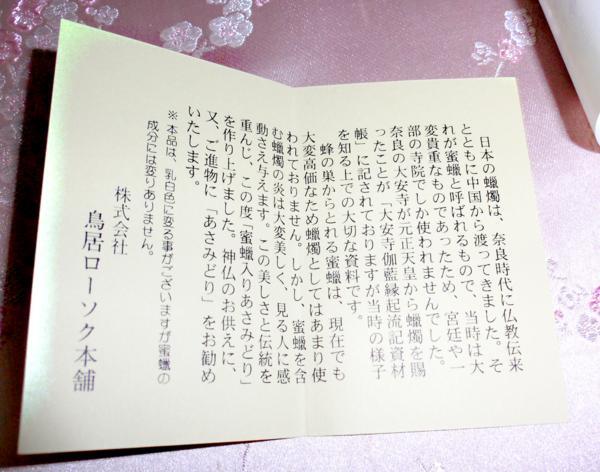 日本の蠟燭は、奈良時代に仏教伝来
とともに中国から渡ってきました。そ
れが蜜蠟と呼ばれるもので、当時は大
変貴重なものであったため、宮廷や一
部の寺院でしか使われませんでした。
奈良の大安寺が元正天皇から蠟燭を賜
ったことが「大安寺伽藍縁起流記資材
帳」に記されておりますが当時の様子
を知る上での大切な資料です。
蜂の巣からとれる蜜蠟は、現在でも
大変高価なため蠟燭としてはあまり使
われておりません。しかし、蜜蠟を含
む蠟燭の炎は大変美しく、見る人に感
動さえ与えます。この美しさと伝統を
重んじ、この度「蜜蠟入りあさみどり」
を作り上げました。神仏のお供えに、
又、ご進物に「あさみどり」をお勧め
いたします。
※本品は、乳白色に変る事がございますが蜜蠟の
成分には変りありません。
株式会社
鳥居ローソク本舗